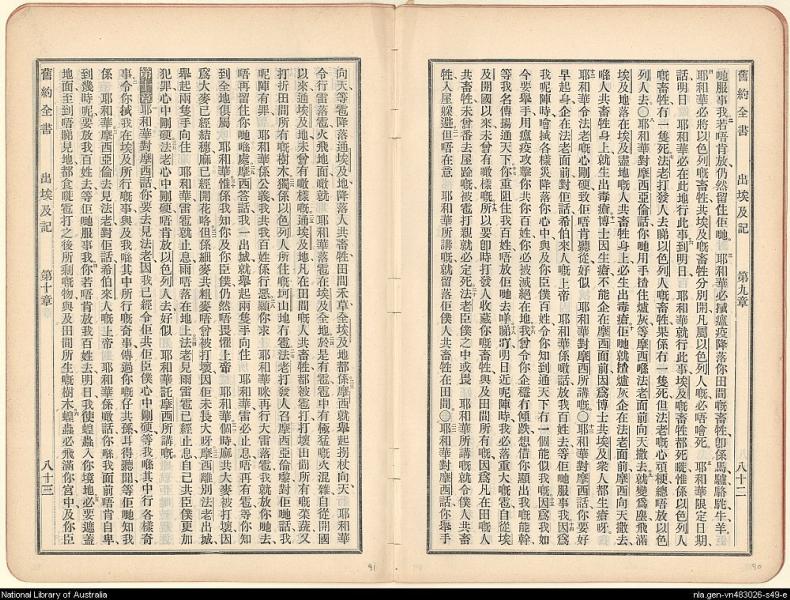 舊約全書 出埃及記 第九章 八十二
哋服事我若唔肯放仍然留住佢哋耶和華必將瘟疫降落你田間嘅畜牲卽係馬驢駱駝牛羊
耶和華必將以色列嘅畜牲共埃及嘅畜牲分別開凡屬以色列人嘅必唔噲死耶和華限定日期
話明日耶和華必在此地行此事到明日耶和華就行此事埃及嘅畜牲都死晓惟係以色列人
嘅畜牲有一隻死法老打發人去睇以色列人嘅畜牲果係有一隻死但法老嘅心頑梗總唔放以色
列人去〇耶和華對摩西亞倫話你哋用手揸住爐灰等摩西喺法老面前向天撒去就變爲塵飛滿
埃及地落在埃及盡地嘅人共畜牲身上必生出毒瘡佢哋就揸爐灰企在法老面前摩西向天撒去
喺人共畜牲身上就生出毒瘡博士因生瘡不能企在摩西面前因爲博士共埃及衆人都生瘡呀
耶和華令法老嘅心剛硬致佢唔肯聽從好似耶和華對摩西所講嘅〇耶和華對摩西話你要好
早起身企在法老面前對佢話希伯來人嘅上帝耶和華係噉話放我百姓去等佢哋服事我因爲
我呢陣時噲掞各樣災降落你心中與及你臣僕百姓令你知到通天下有一個能似我嘅因爲我如
今要舉手用瘟疫攻擊你共你百姓你必被滅絕在地我曾令你企穩有傾跌想借你顯出我嘅能幹
等我名傳揚通天下你重阻住我百姓唔放佢哋去咩睇吓明日近呢陣時我必落重大嘅雹自從埃
及開國以來未曾有噉樣嘅所以要卽時打發人收藏你嘅畜牲與及田間所有嘅因爲凡在田嘅人
共畜牲未曾番去屋跲嘅被雹打親就必定死法老臣僕之中或畏耶和華所講嘅就令僕人共畜
牲入屋躱避但唔在意耶和華所講嘅就留落佢僕人共畜牲在田間〇耶和華對摩西話你舉手
向天等雹降落通埃及地降落人共畜牲田間禾草全埃及地都係摩西就舉起柺杖向天耶和華
令行雷落雹火飛地面嗽就耶和華落雹在埃及全地於是有雹雹中有極猛嘅火混雜自從開國
以來通埃及地未曾有噉樣嘅通埃及地凡在田間嘅人共畜牲都被雹打打壞田間所有嘅菜蔬又
打折田間所有嘅樹木獨係以色列人所住嘅坷山地有雹法老打發人召摩西亞倫嚟對佢哋話我
呢陣有罪耶和華係公義我共我百姓係行惡願你求耶和華咪再行大雷落雹我就放你哋去
唔再留住你哋喺處摩西答話我一出城就舉起兩隻手向住耶和華雷必止息唔再有雹等你知
到全地俱屬耶和華惟係我知你及你臣僕仍然唔畏懼上帝耶和華個時麻共大麥被打壞因
爲大麥已經結穗麻已經開花略但係細麥共粗麥唔曾被打壞因佢未長大呀摩西離別法老出城
舉起兩隻手向住耶和華雷雹就止息雨唔落在地上法老見雨雷雹已經止息自己共臣僕更加
犯罪心中剛硬法老心中剛硬唔肯放以色列人去好似耶和華託摩西所講嘅
第十章 耶和華對摩西話你要去見法老因我已經令佢共佢臣僕心中剛硬等我喺其中行各樣奇
事令你掞我在埃及所行嘅事與及我喺其中所行嘅奇事傳過你嘅仔共孫耳得聽聞等佢哋知我
係耶和華摩西亞倫去見法老對佢話希伯來人嘅上帝耶和華係噉話你喺我面前唔肯自卑
到幾時呢要放我百姓去等佢哋服事我你若唔肯放我百姓去明日我使蝗蟲入你境地必要遮蓋
地面至到唔睇見地都食晓雹打之後所剩嘅物與及田間所生嘅樹木蝗蟲必飛滿你宮中及你臣
舊約全書 出埃及記 第十章 八十三
81
80
National Library of Australia
nla.gen-vn483026-s49-e